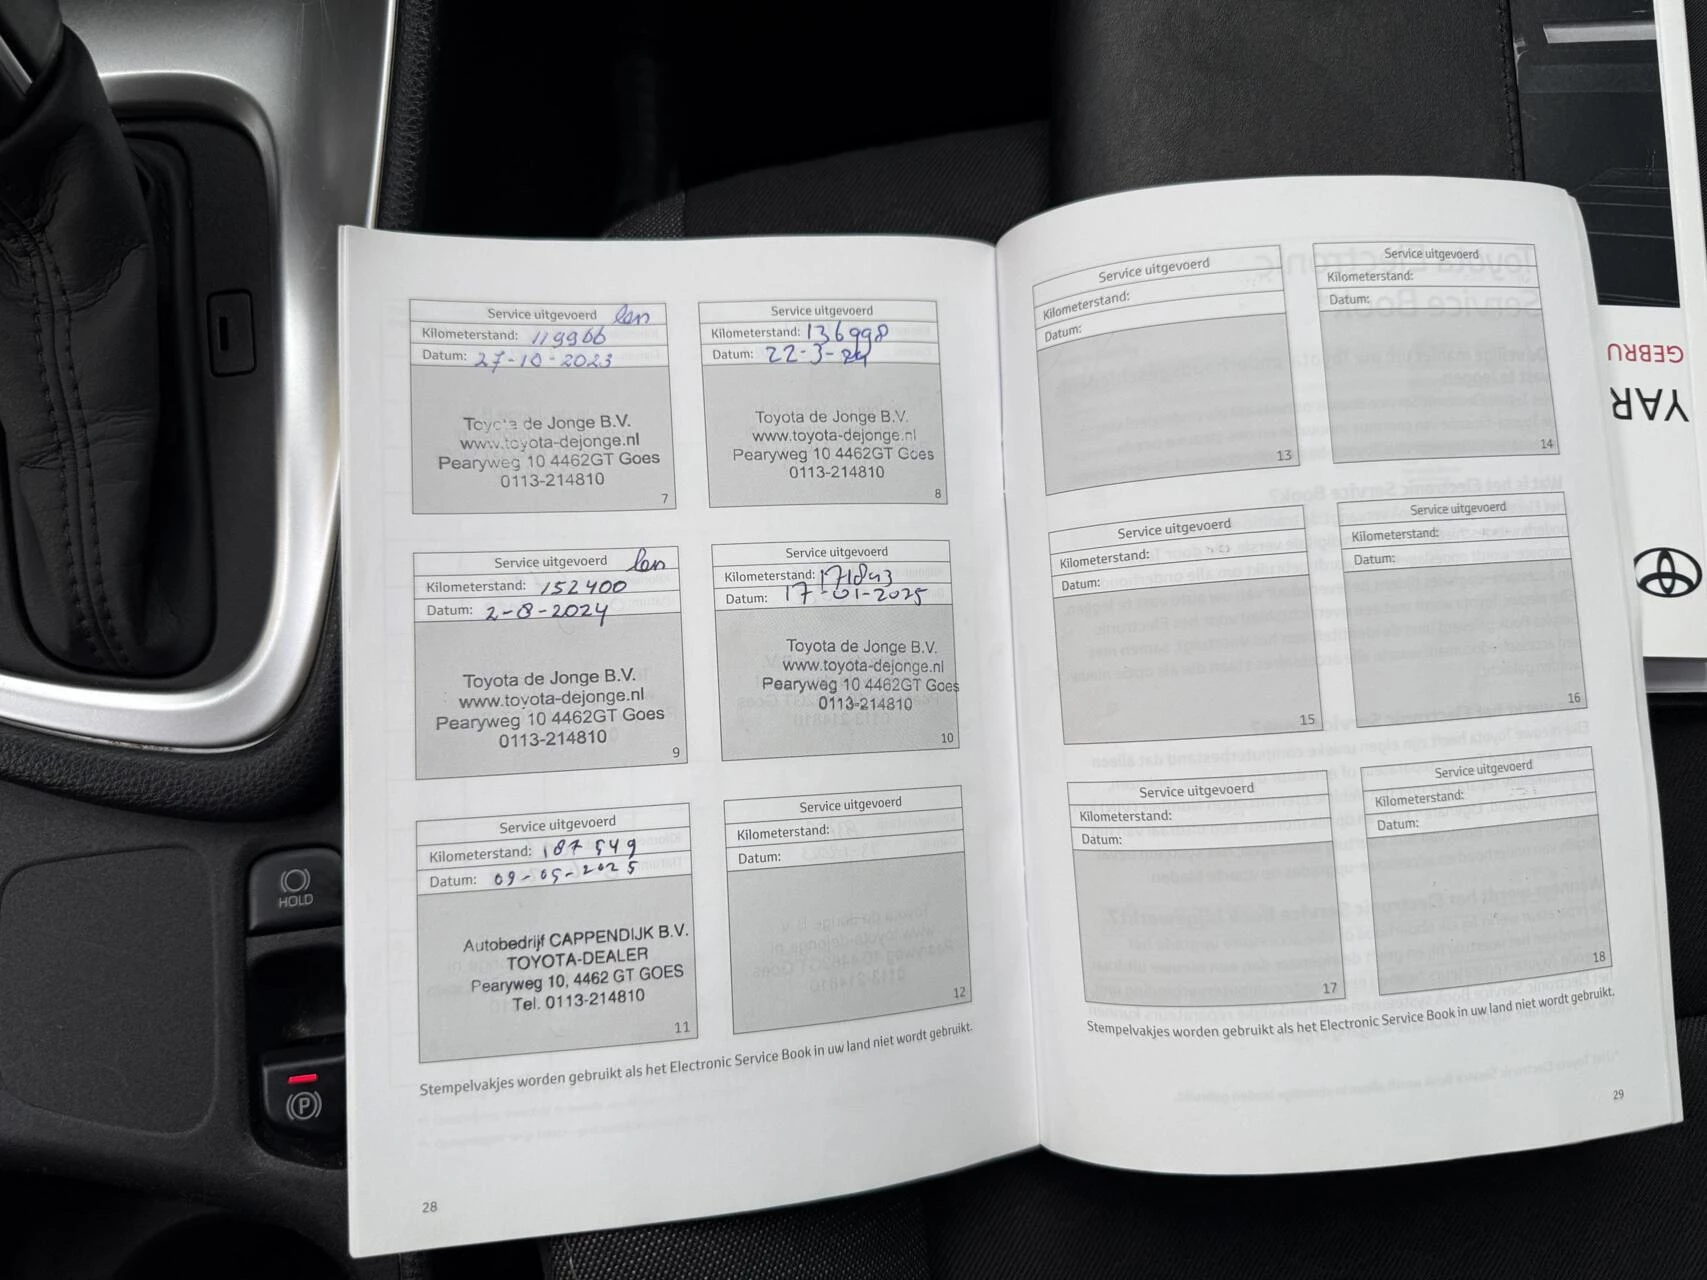 Service uitgevoerd
Kilometerstand: 119966
Datum: 27-10-2023
Toyota de Jonge B.V.
www.toyota-dejonge.nl
Pearyweg 10 4462GT Goes
0113-214810
7
Service uitgevoerd
Kilometerstand: 136998
Datum: 22-3-24
Toyota de Jonge B.V.
www.toyota-dejonge.nl
Pearyweg 10 4462GT Goes
0113-214810
8
Service uitgevoerd
Kilometerstand: 152400
Datum: 2-8-2024
Toyota de Jonge B.V.
www.toyota-dejonge.nl
Pearyweg 10 4462GT Goes
0113-214810
9
Service uitgevoerd
Kilometerstand:
Datum: 17-01-2025
Toyota de Jonge B.V.
www.toyota-dejonge.nl
Pearyweg 10 4462GT Goes
0113-214810
10
Service uitgevoerd
Kilometerstand: 187549
Datum: 09-05-2025
Autobedrijf CAPPENDIJK B.V.
TOYOTA-DEALER
Pearyweg 10, 4462 GT GOES
Tel. 0113-214810
11
Service uitgevoerd
Kilometerstand:
Datum:
12
Stempelvakjes worden gebruikt als het Electronic Service Book in uw land niet wordt gebruikt.
28
Service uitgevoerd
Kilometerstand:
Datum:
13
Service uitgevoerd
Kilometerstand:
Datum:
14
Service uitgevoerd
Kilometerstand:
Datum:
15
Service uitgevoerd
Kilometerstand:
Datum:
16
Service uitgevoerd
Kilometerstand:
Datum:
17
Service uitgevoerd
Kilometerstand:
Datum:
18
Stempelvakjes worden gebruikt als het Electronic Service Book in uw land niet wordt gebruikt.
29
GEBRU
YAR
HOLD
P